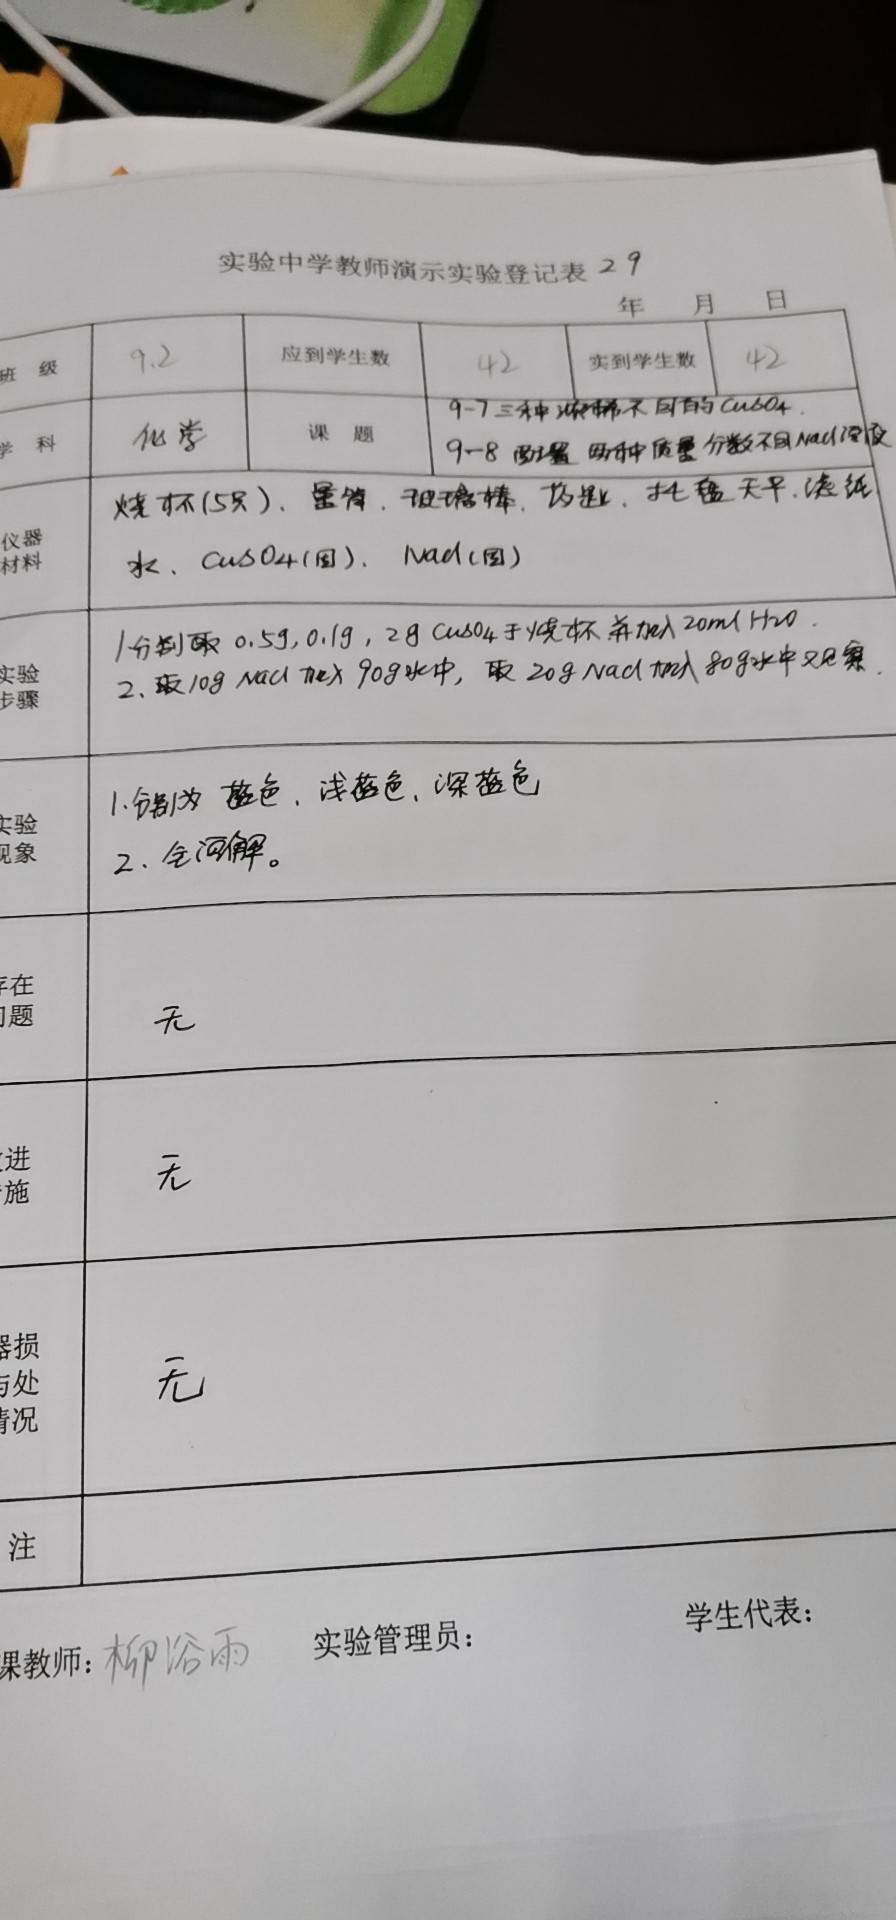 实验中学教师演示实验登记表 29
年 月 日
班 级 9.2 应到学生数 42 实到学生数 42
学 科 化学 课 题 9-7三种浓稀不同的CuSO4.
9-8 两种质量分数不同NaCl溶液
仪器
材料
烧杯(5只)、量筒、玻璃棒、药匙、托盘天平、滤纸
水、CuSO4(固)、NaCl(固)
实验
步骤
1分别取 0.5g,0.1g,2g CuSO4于烧杯并加入20ml H2O.
2、取10g NaCl加入90g水中,取20g NaCl加入80g水中观察.
实验
现象
1.分别为 蓝色、浅蓝色、深蓝色
2、全溶解。
存在
问题
无
进
施
无
器损
与处
情况
无
注
课教师:柳浴雨 实验管理员: 学生代表: